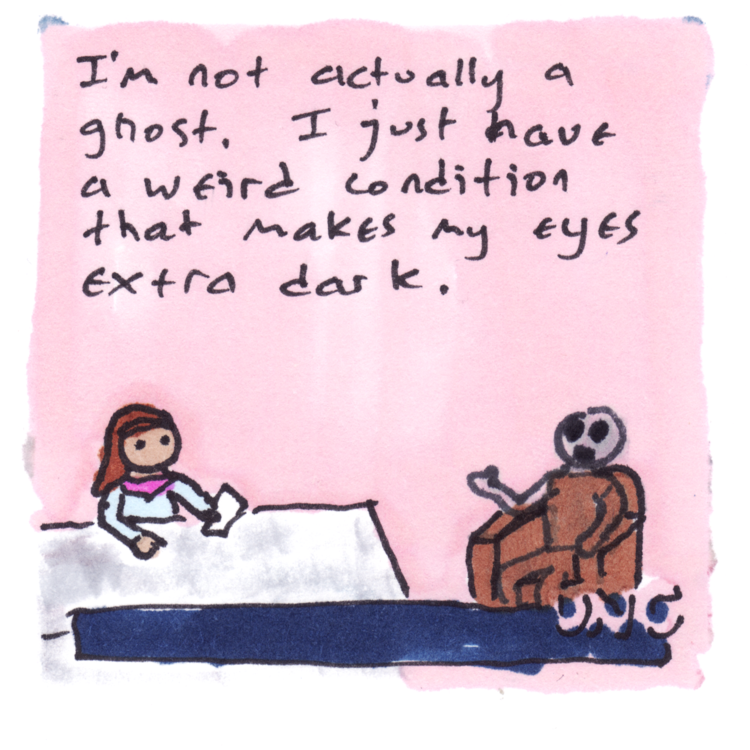 I'm not actually a
ghost. I just have
a weird condition
that makes my eyes
extra dark.